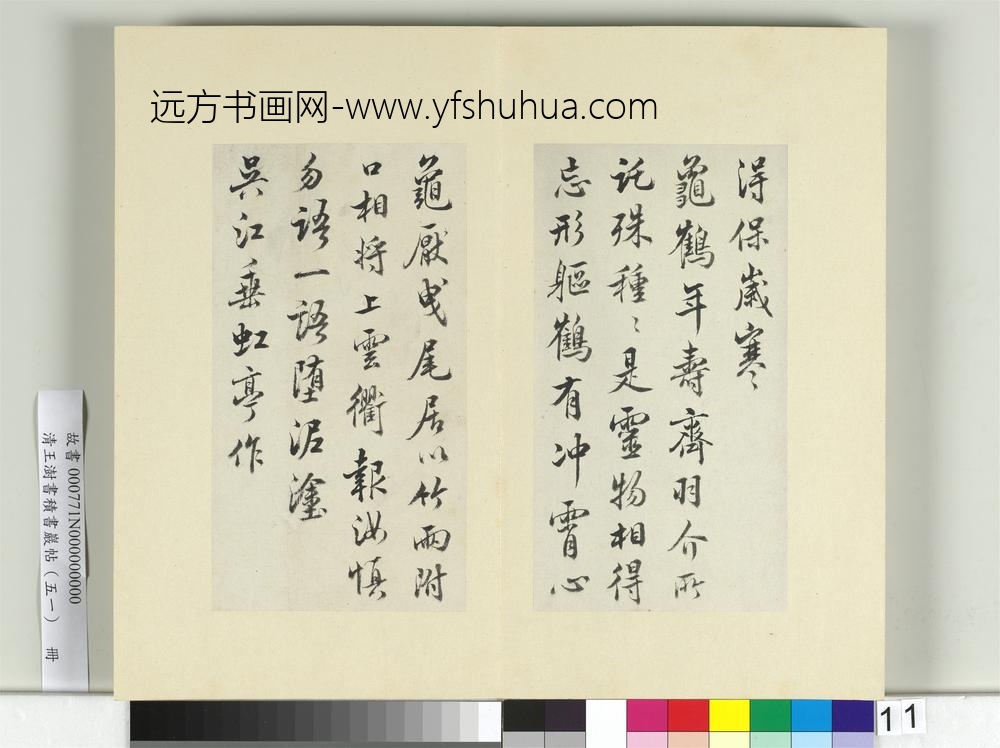 远方书画网-www.yfshuhua.com
得保歲寒
龜鶴年壽齊羽介所
託殊種〻是靈物相得
忘形軀鶴有冲霄心
龜厭曳尾居以竹兩附
口相将上雲衢報汝慎
勿語一語堕泥塗
吳江垂虹亭作
故書 000771N000000000
清王澍書積書巖帖(五一) 冊
11